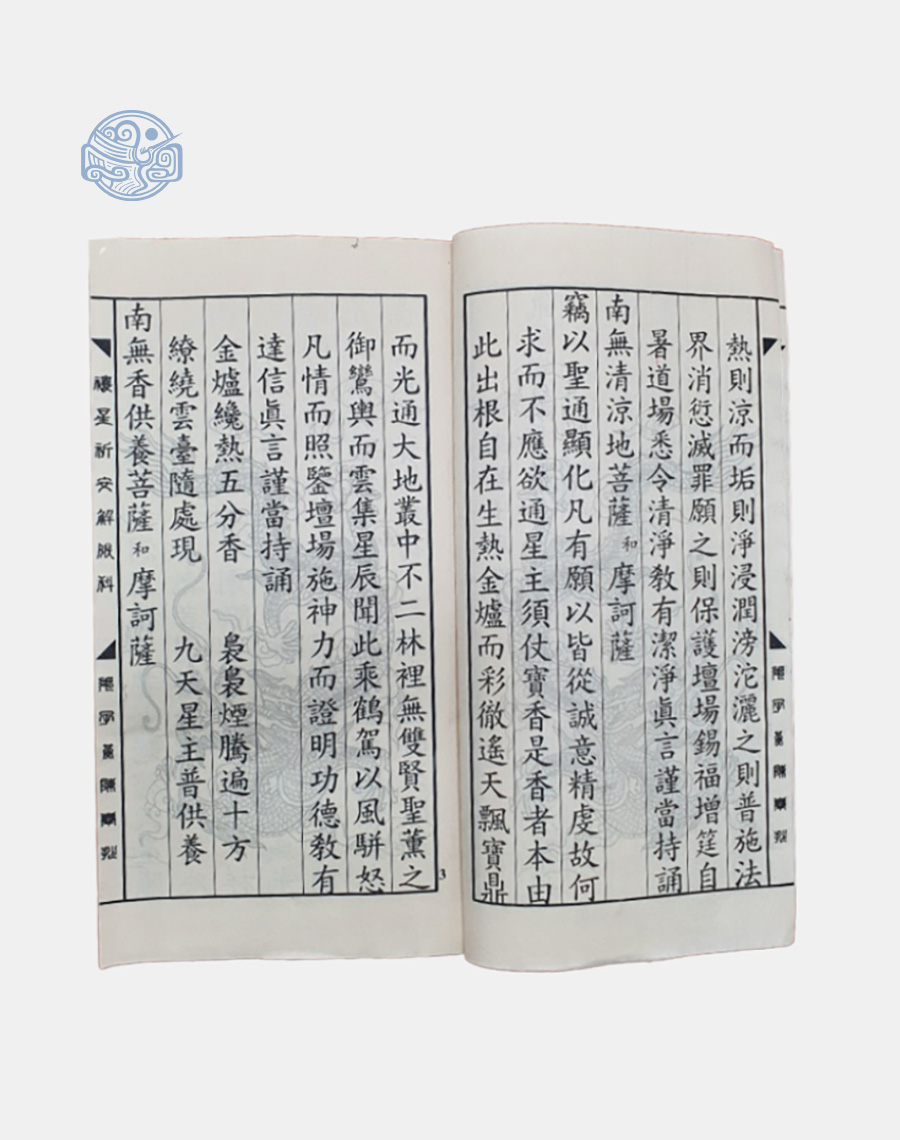 熱則涼而垢則淨浸潤滂沱灑之則普施法
界消愆滅罪願之則保護壇場錫福增筵自
暑道場悉令清淨教有潔淨眞言謹當持誦
南無清涼地菩薩和摩訶薩
竊以聖通顯化凡有願以皆從誠意精虔故何
求而不應欲通星主須仗寶香是香者本由
此出根自在生熱金爐而彩徹遙天飄寶鼎
而光通大地叢中不二林裡無雙賢聖薰之
御鸞輿而雲集星辰聞此乘鶴駕以風駢恕
凡情而照鑒壇場施神力而證明功德教有
達信眞言謹當持誦
金爐纔熱五分香 裊裊煙騰遍十方
繚繞雲臺隨處現 九天星主普供養
南無香供養菩薩和摩訶薩
禳星祈安解厄科
3